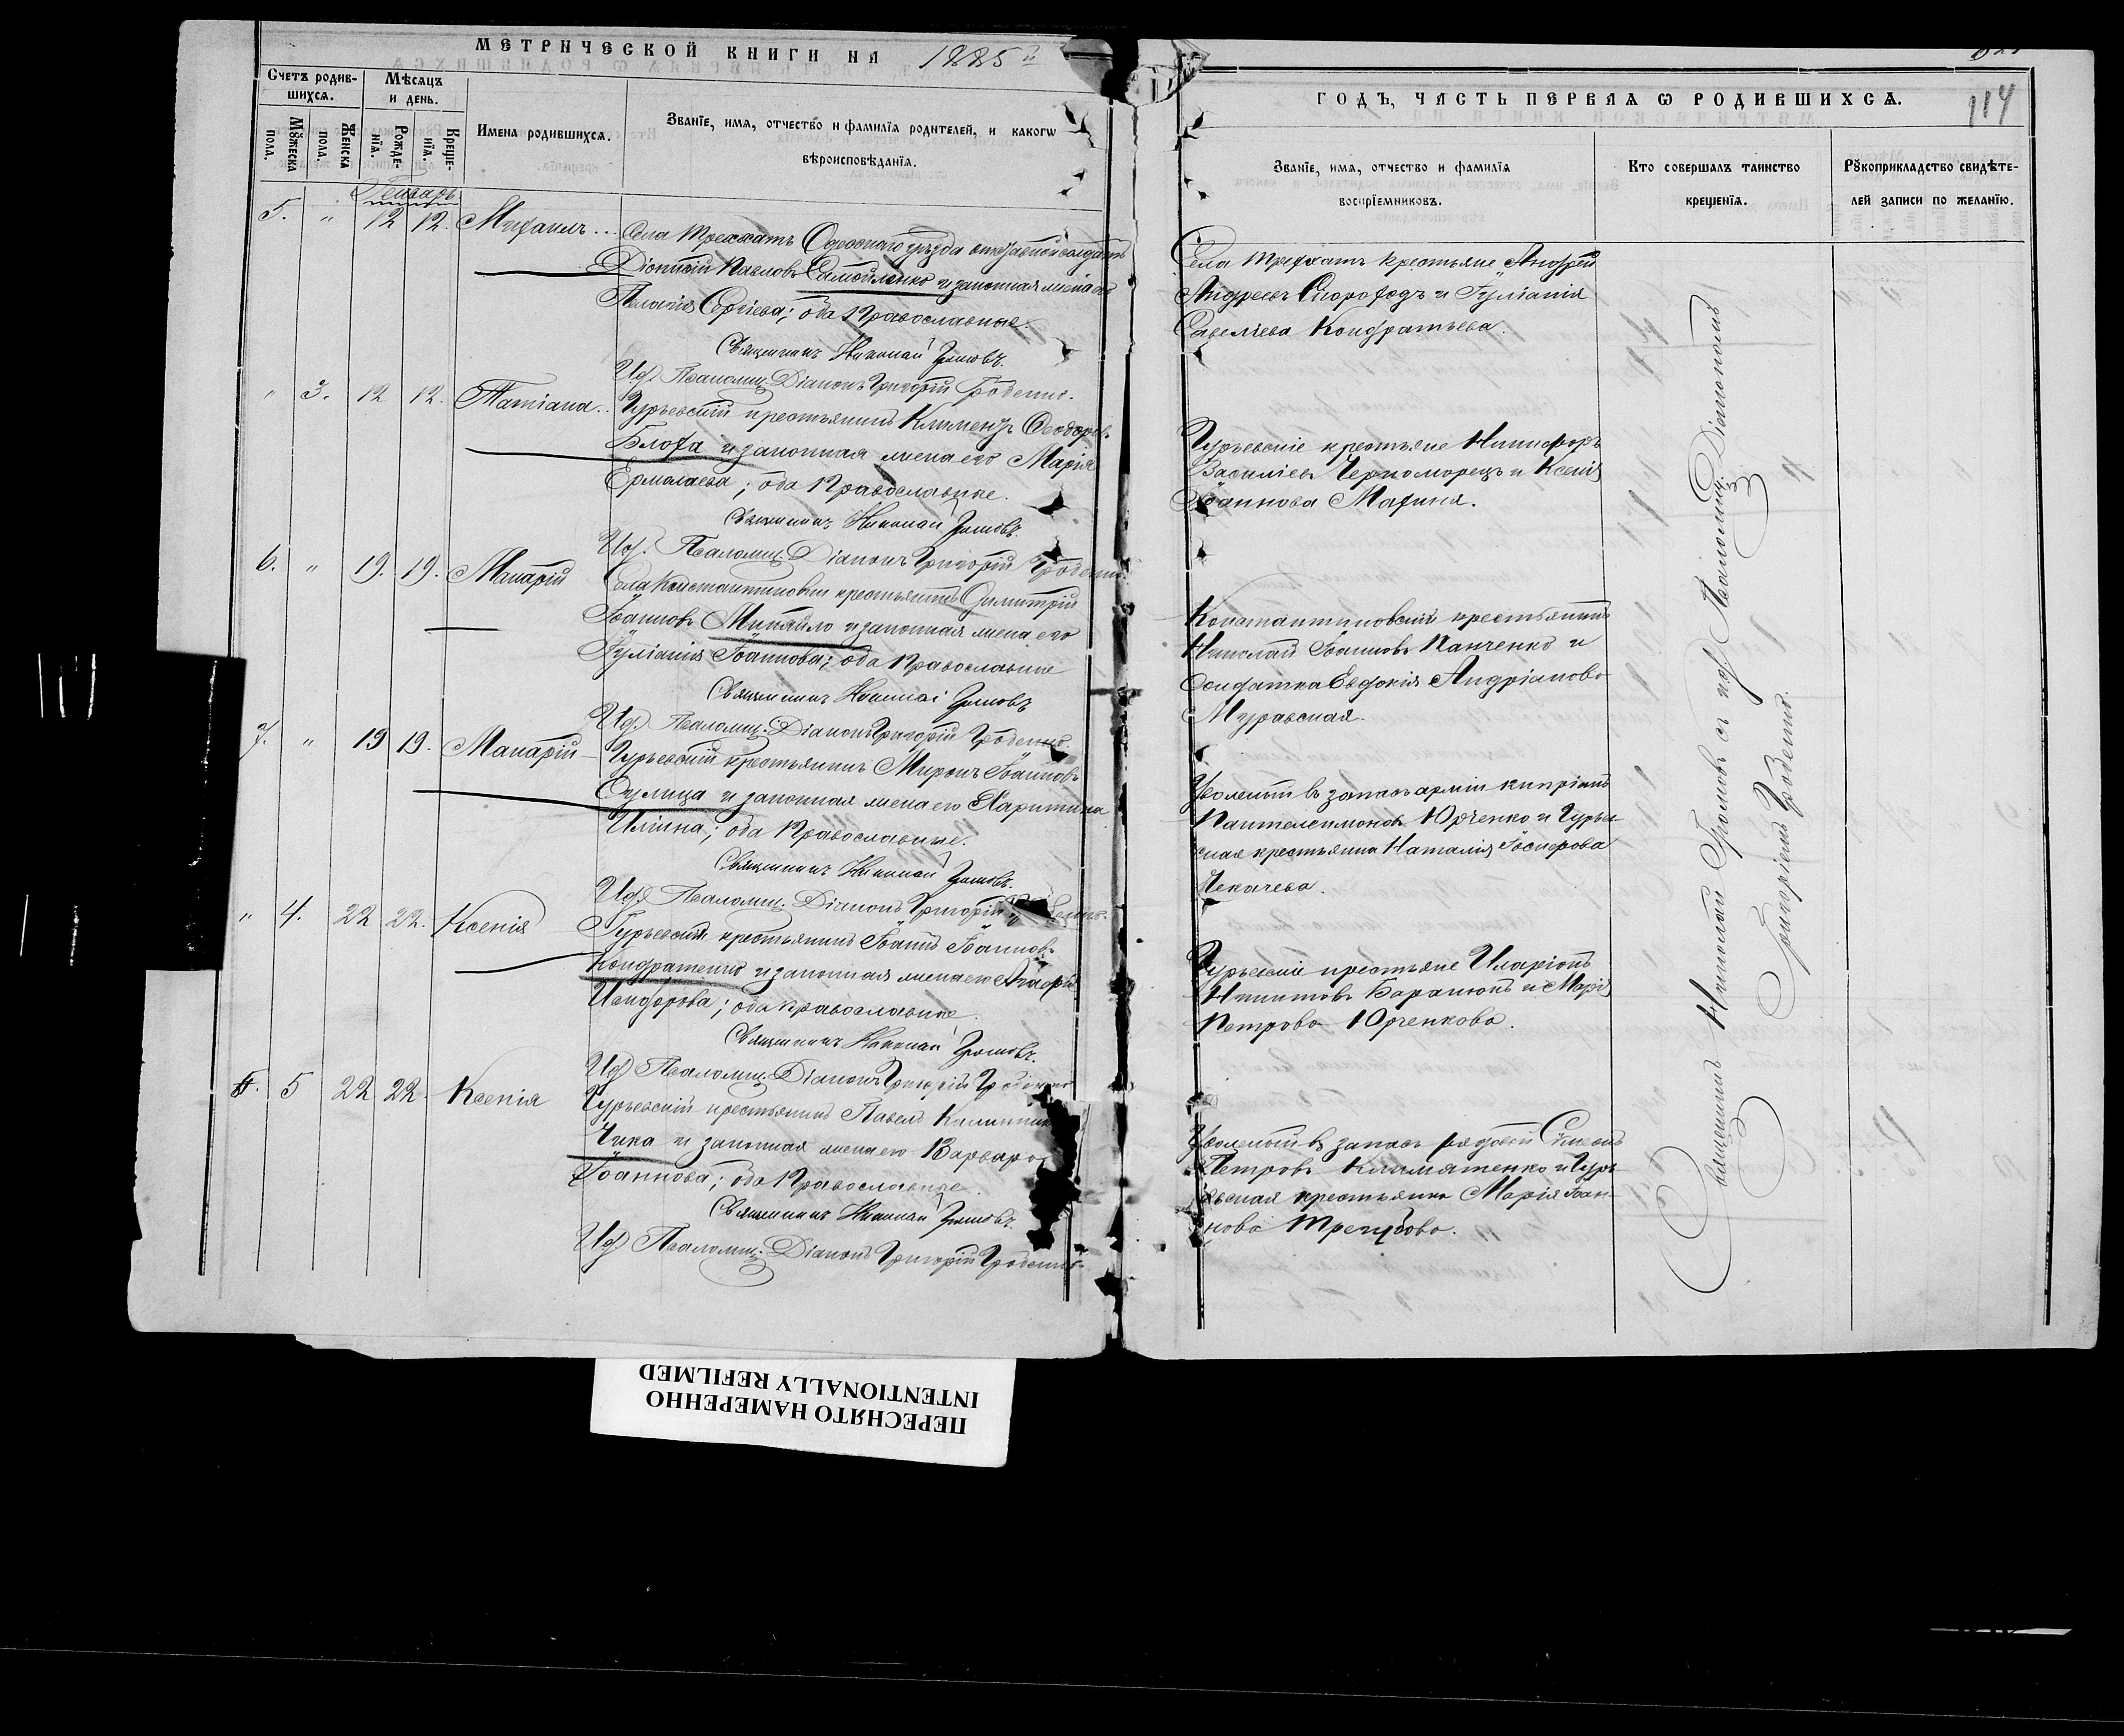 МЕТРИЧЕСКОЙ КНИГИ НА 1885 й
Счетъ родив-
шихсѧ.
Мѣсяцъ
и день.
Имена родившихсѧ.
Званїе, имѧ, отчество и фамилїѧ родителей, и какогѡ
вѣроисповѣданїѧ.
Мꙋжеска
пола.
Женска
пола.
Рожде-
нїѧ.
Креще-
нїѧ.
Январь
5. " 12 12. Михаилъ
Села Трехатъ Одесскаго уѣзда отставной солдатъ
Діонисій Павловъ Самойленко и законная жена его
Пелагія Сергіева; оба Православные.
Священникъ Николай Громовъ.
И.д. Псаломщ. Діаконъ Григорій Гроденко.
" 3. 12 12. Татіана
Гурьевскій крестьянинъ Климентъ Ѳеодоровъ
Блоха и законная жена его Марія
Ермолаева; оба Православные.
Священникъ Николай Громовъ.
И.д. Псаломщ. Діаконъ Григорій Гроденко.
6. " 19. 19. Макарій
Села Константиновки крестьянинъ Димитрій
Іоанновъ Микайло и законная жена его
Іуліанія Іоаннова; оба Православные
Священникъ Николай Громовъ
И.д. Псаломщ. Діаконъ Григорій Гроденко.
7. " 19 19. Макарій
Гурьевскій крестьянинъ Миронъ Іоанновъ
и законная жена его Харитина
Иліина; оба Православные.
Священникъ Николай Громовъ.
И.д. Псаломщ. Діаконъ Григорій
" 4. 22 22. Ксенія
Гурьевскій крестьянинъ Іоаннъ Іоанновъ
Кондратенко и законная жена его Агафія
оба православные.
Священникъ Николай Громовъ.
И.д. Псаломщ. Діаконъ Григорій Гроденко
5 22 22. Ксенія
Гурьевскій крестьянинъ Павелъ
Чика и законная жена его Варвара
Іоаннова; оба Православные.
Священникъ Николай Громовъ.
И.д. Псаломщ. Діаконъ Григорій Гроденко.
ГОДЪ, ЧАСТЬ ПЕРВАѦ Ѡ РОДИВШИХСѦ.
114
Званїе, имѧ, отчество и фамилїѧ
воспрїемниковъ.
Кто совершалъ таинство
крещенїѧ.
Рꙋкоприкладство свидѣте-
лей записи по желанїю.
Села Трехатъ крестьяне Андрей
Андреевъ Скороходъ и Іуліанія
Савеліева Кондратьева.
Гурьевскіе крестьяне Никифоръ
Василіевъ Черноморецъ и Ксенія
Іоаннова Махиня.
Константиновскій крестьянинъ
Николай Іоанновъ Панченко и
солдатка Евдокія Андріанова
Муравская.
Уволеный въ запасъ арміи Кипріанъ
Пантелеимоновъ Юрченко и Гурьев-
ская крестьянка Наталія Іосифова
Чекачева.
Гурьевскіе крестьяне Иларіонъ
Никитовъ Баранюкъ и Марія
Петрова Юрченкова.
Уволеный въ запасъ рядовой Сѵмеонъ
Петровъ Климатенко и Гурь-
евская крестьянка Марія Іоан-
нова
Священникъ Николай Громовъ съ и.д. Псаломщ. Діакономъ
Григоріемъ Гроденко.
ПЕРЕСНЯТО НАМЕРЕННО
INTENTIONALLY REFILMED